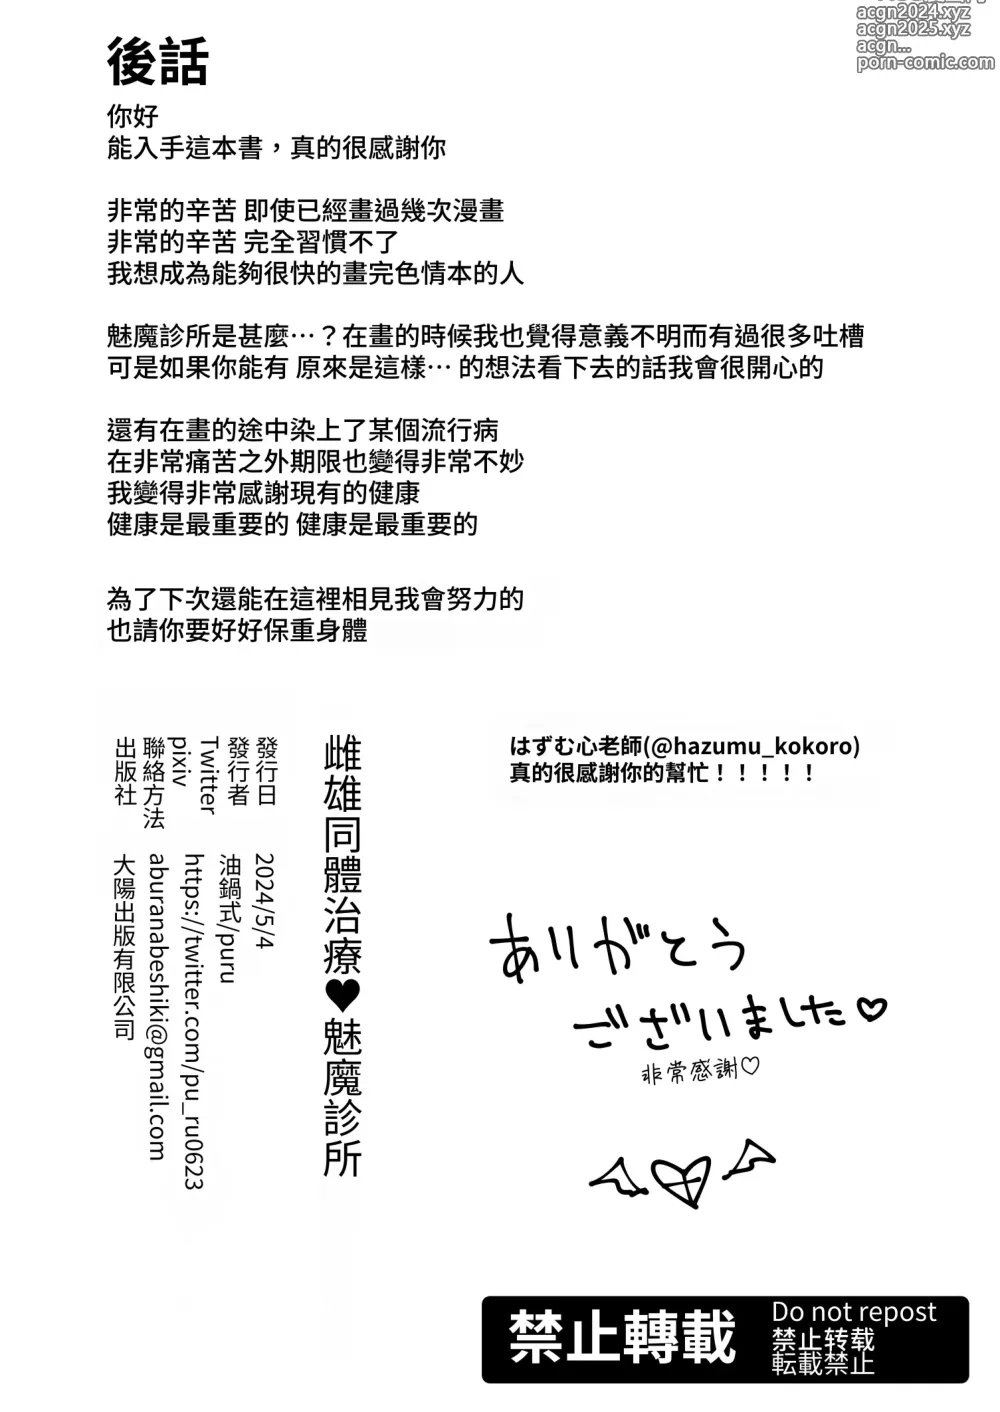 acgn2024.xyz
acgn2025.xyz
acgn...
porn-comic.com
後話
你好
能入手這本書，真的很感謝你
非常的辛苦 即使已經畫過幾次漫畫
非常的辛苦 完全習慣不了
我想成為能夠很快的畫完色情本的人
魅魔診所是甚麼…？在畫的時候我也覺得意義不明而有過很多吐槽
可是如果你能有 原來是這樣… 的想法看下去的話我會很開心的
還有在畫的途中染上了某個流行病
在非常痛苦之外期限也變得非常不妙
我變得非常感謝現有的健康
健康是最重要的 健康是最重要的
為了下次還能在這裡相見我會努力的
也請你要好好保重身體
はずむ心老師(@hazumu_kokoro)
真的很感謝你的幫忙！！！！！
雌雄同體治療♥魅魔診所
發行日 2024/5/4
發行者 油鍋式/puru
Twitter https://twitter.com/pu_ru0623
pixiv
聯絡方法 aburanabeshiki@gmail.com
出版社 大陽出版有限公司
ありがとう
ございました♡
非常感謝♡
禁止轉載
Do not repost
禁止转载
転載禁止